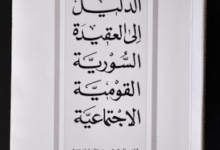 الدليل
إلى العقيدة
السورية
القومية
الاجتماعية